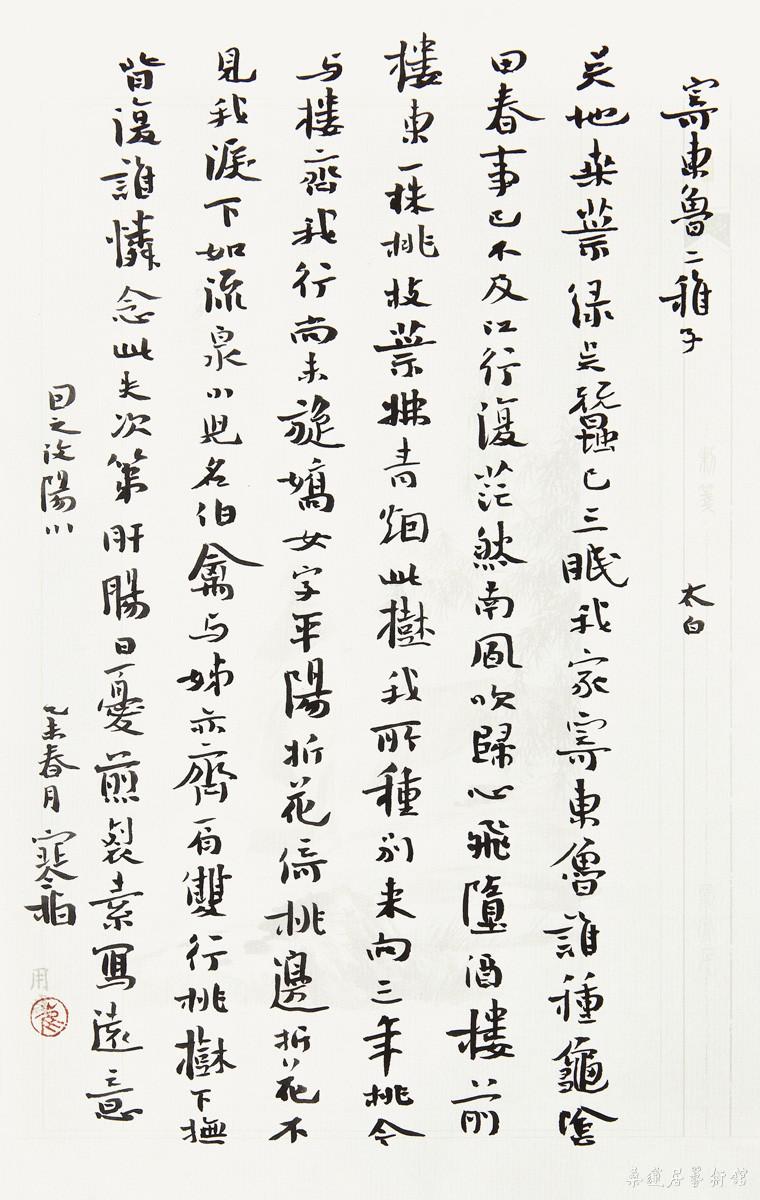 寄東魯二稚子 太白
吴地桑葉緑吴蠶已三眠我家寄東魯誰種龜陰
田春事已不及江行復茫然南風吹歸心飛墮酒樓前
樓東一株桃枝葉拂青烟此樹我所種别来向三年桃今
与樓齊我行尚未旋嬌女字平陽折花倚桃邊折花不
見我淚下如流泉小兒名伯禽与姊亦齊肩雙行桃樹下撫
背復誰憐念此失次第肝腸日憂煎裂素寫遠意
因之汶陽川 乙未春月
桑蓮居藝術館